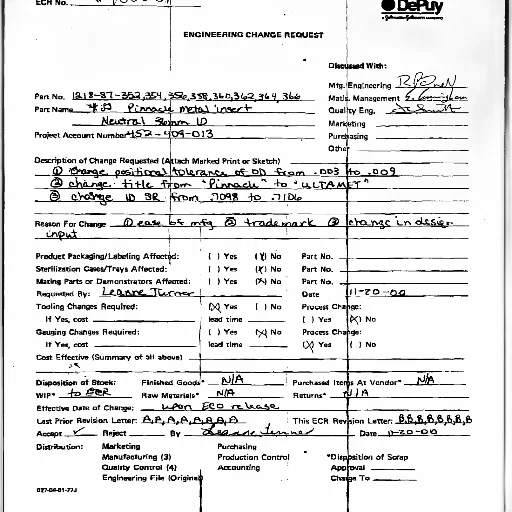 ECR No.
DePuy
ENGINEERING CHANGE REQUEST
Discussed With:
Mfg. Engineering
Part No. 1218-87-352, 354, 356, 358, 360, 362, 364, 366
Matls. Management
Part Name Pinnacle Metal insert
Quality Eng. J. Smith
Neutral 36mm ID
Marketing
Project Account Number 452-409-013
Purchasing
Other
Description of Change Requested (Attach Marked Print or Sketch)
① change positional tolerance of OD from .003 to .009
② change title from "Pinnacle" to "ULTAMET"
③ change ID SR from .7098 to .7106
Reason For Change ① ease of mfg ② trademark ③ change in design
input
Product Packaging/Labeling Affected: ( ) Yes (X) No Part No.
Sterilization Cases/Trays Affected: ( ) Yes (X) No Part No.
Mating Parts or Demonstrators Affected: ( ) Yes (X) No Part No.
Requested By: Leanne Turner Date 11-20-00
Tooling Changes Required: (X) Yes ( ) No Process Change:
If Yes, cost lead time ( ) Yes (X) No
Gauging Changes Required: ( ) Yes (X) No Process Change:
If Yes, cost lead time (X) Yes ( ) No
Cost Effective (Summary of all above)
Disposition of Stock: Finished Goods* N/A Purchased Items At Vendor* N/A
WIP* to ECR Raw Materials* N/A Returns* N/A
Effective Date of Change: upon ECO release
Last Prior Revision Letter: A, A, A, A, A, B, A, A This ECR Revision Letter: B, B, B, B, B, B, B
Accept ✓ Reject By Leanne Turner Date 11-20-00
Distribution: Marketing Purchasing
Manufacturing (3) Production Control *Disposition of Scrap
Quality Control (4) Accounting Approval
Engineering File (Original) Charge To